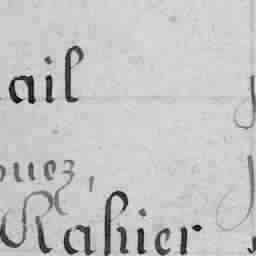 ail
ouez,
Rahier